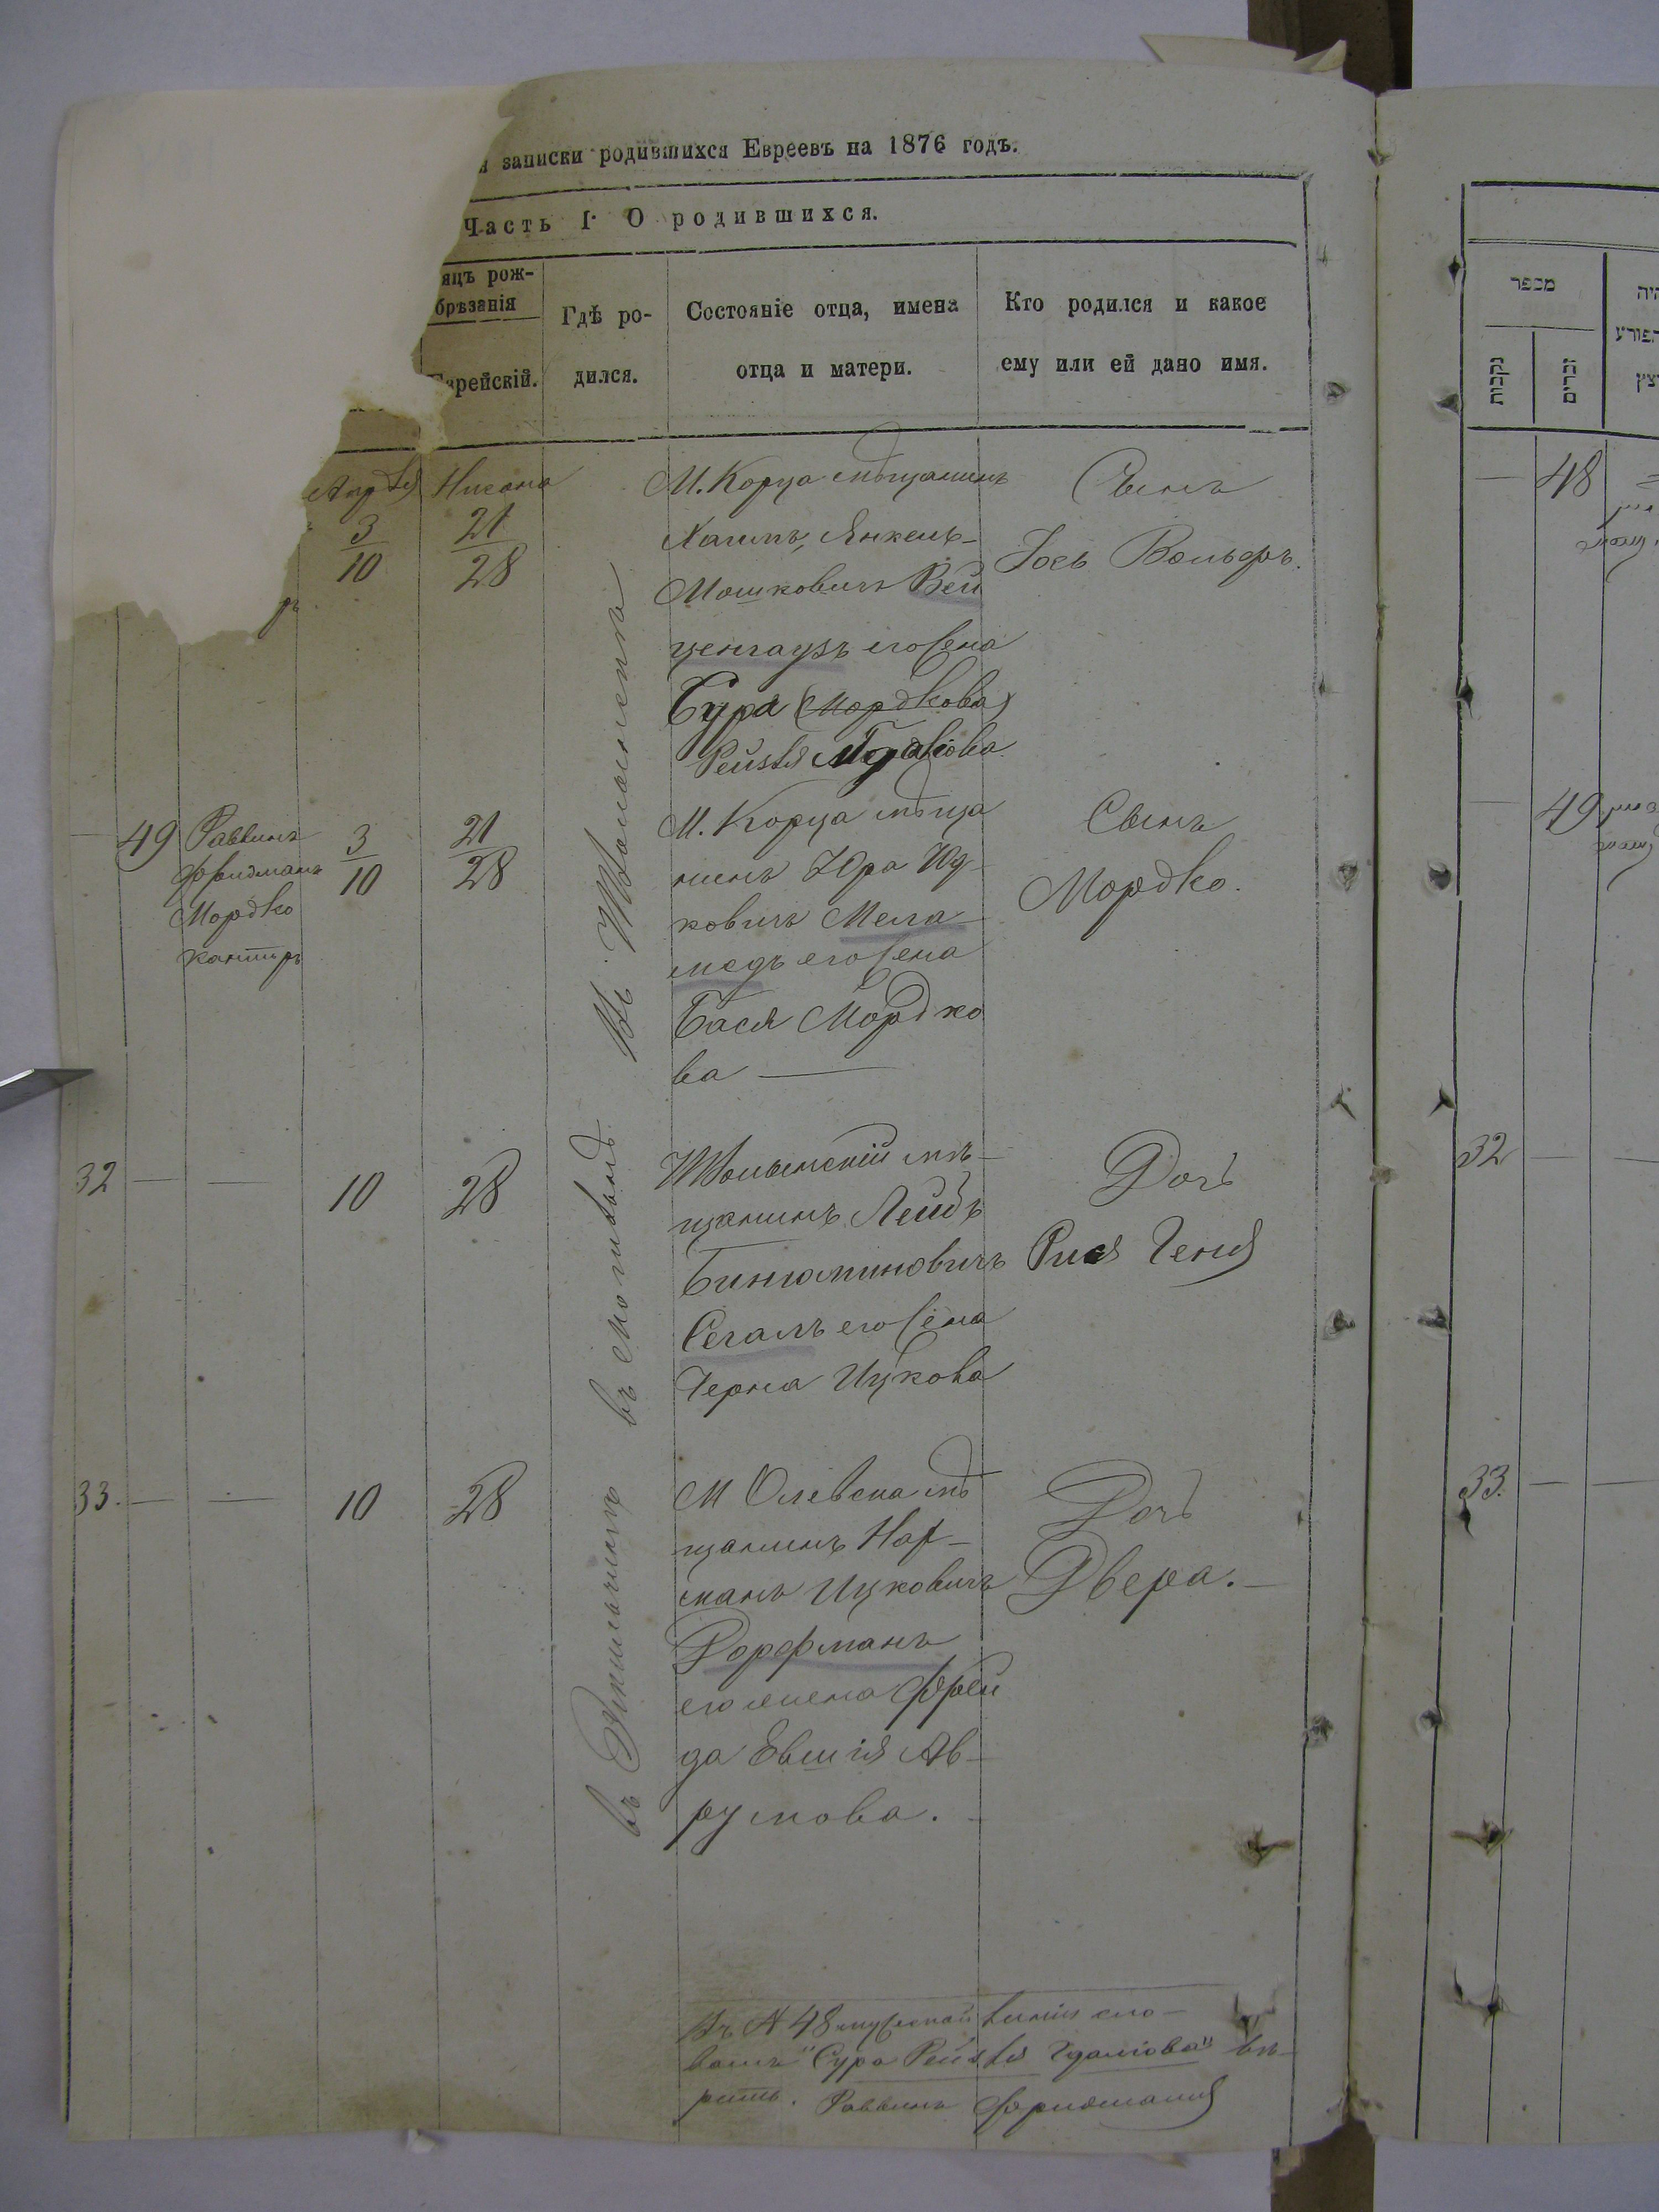 записки родившихся Евреевъ на 1876 годъ.
Часть I О родившихся.
яцъ рож-
брѣзанія
Еврейскій.
Гдѣ ро-
дился.
Состояніе отца, имена
отца и матери.
Кто родился и какое
ему или ей дано имя.
Апрѣля
3
10
Нисана
21
28
М. Корца мѣщанинъ
Хаимъ, Янкель-
Мошковичъ Вей
ценгаузъ его жена
Сура (Мордкова)
Рейзля Гдалiова
Сынъ
Іось Вольфъ.
49
Раввинъ
Фридманъ
Мордко
Кантиръ
3
10
21
28
М. Корца мѣща
нинъ Юра Иц-
ковичъ Мела-
медъ его жена
Бася Мордко
ва
Сынъ
Мордко.
32
10
28
щанинъ Лейбъ
Биньаминовичъ
Сегалъ его жена
Черна Ицкова
Дочь
Рися Геня
33.
10
28
М Олевска мѣ
щанинъ Нах-
манъ Ицковичъ
Дорфманъ
его жена Фрей
да Евшія Ав-
румова.
Дочь
Двера.
Въ № 48 мужской линіи сло-
вамъ "Сура Рейзля Гдаліова" вѣ-
рить. Раввинъ Фридманъ
מספר
נקבות
זכרים
48
49
32
33.